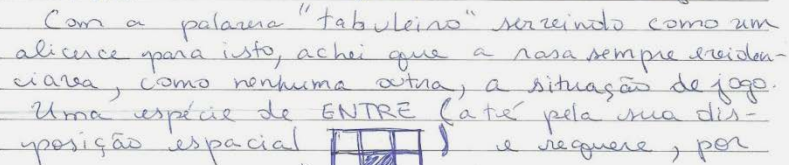 Com a palavra "tabuleiro" servindo como um
alicerce para isto, achei que a rasa sempre eviden-
ciava, como nenhuma outra, a situação de jogo.
Uma espécie de ENTRE (até pela sua dis-
posição espacial ) e requere, por